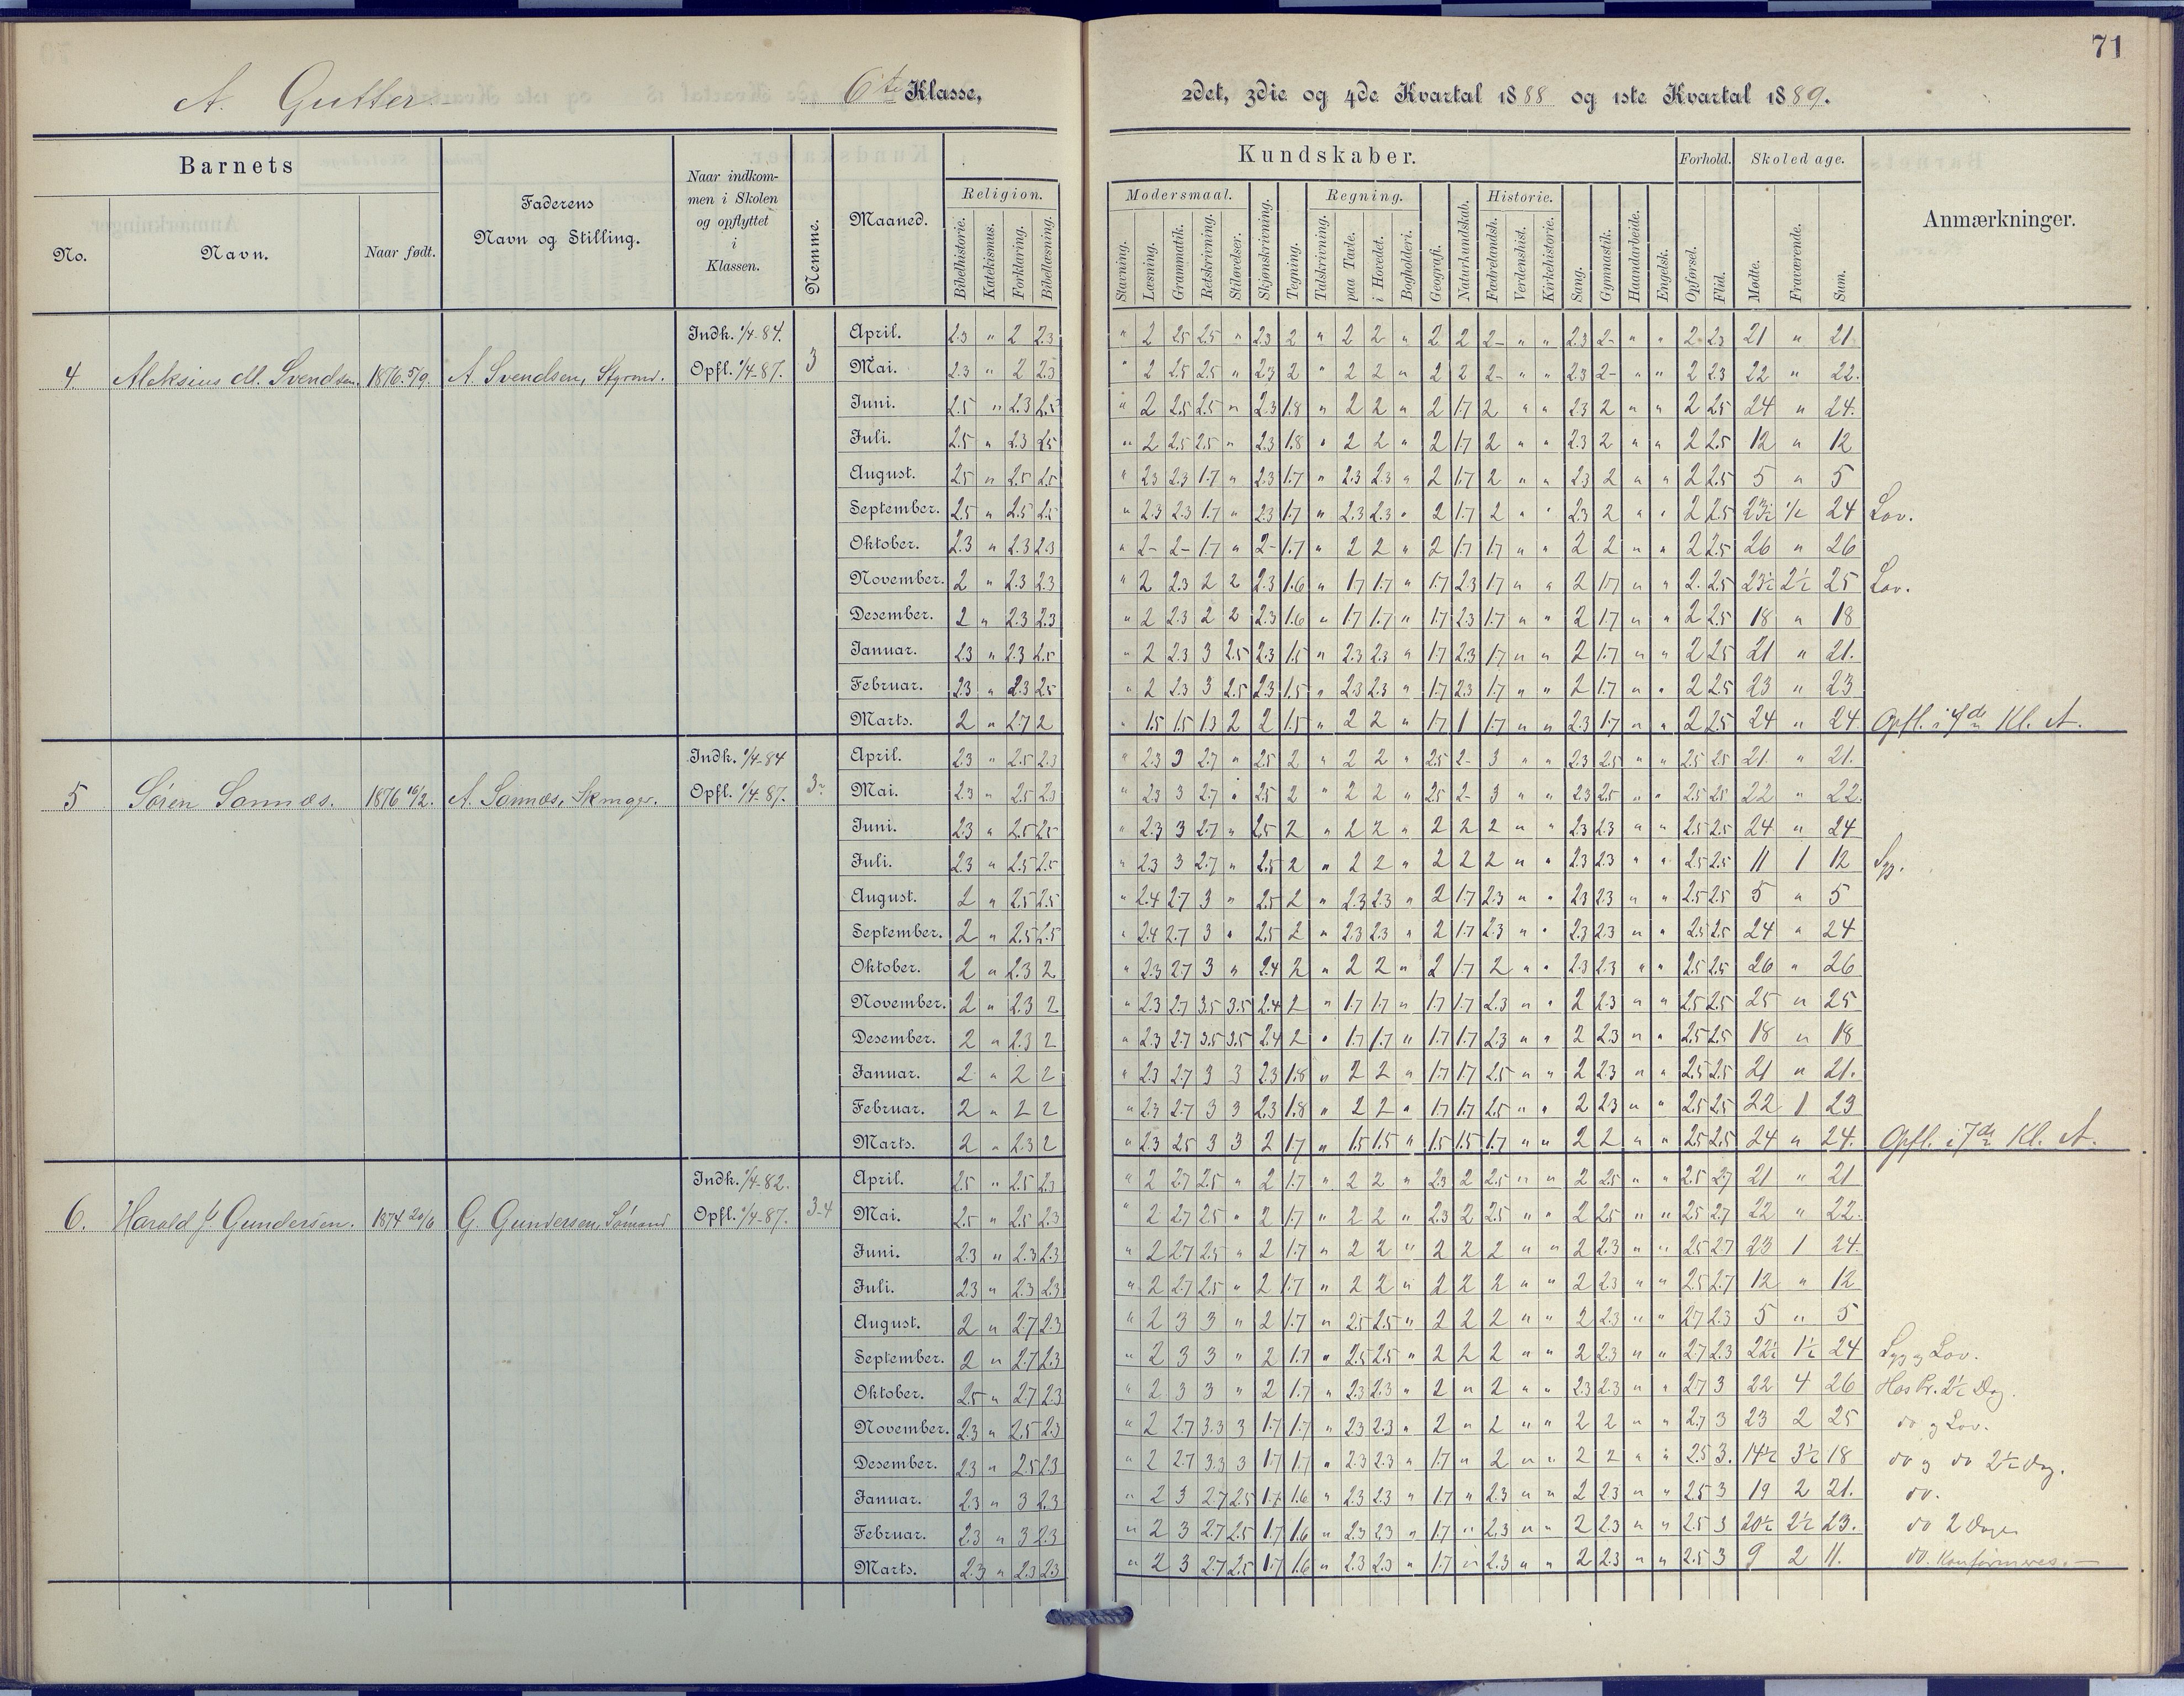 71
A. Gutter 6te Klasse, 2det, 3die og 4de Kvartal 1888 og 1ste Kvartal 1889.
Barnets
No. Navn. Naar født.
Faderens Navn og Stilling.
Naar indkommen i Skolen og opflyttet i Klassen.
Nemme.
Maaned.
Kundskaber.
Religion.
Bibelhistorie. Katekismus. Forklaring. Bibellæsning.
Modersmaal.
Stavning. Læsning. Grammatik. Retskrivning. Stiløvelser.
Skjønskrivning. Tegning.
Regning.
Talskrivning. paa Tavle. i Hovedet. Bogholderi.
Geografi. Naturkundskab.
Historie.
Fædrelandsh. Verdenshist. Kirkehistorie.
Sang. Gymnastik. Haandarbeide. Engelsk.
Forhold.
Opførsel. Flid.
Skoledage.
Mødte. Fraværende. Sum.
Anmærkninger.
4 Aleksius M. Svendsen. 1876 5/9. A. Svendsen, Styrmd. Indk. 1/4-84. Opfl. 1/4-87. 3
April. 2.3 " 2 2.3 " 2 2.5 2.5 " 2.3 2 " 2 2 " 2 2 2- " " 2.3 2- " " 2 2.3 21 " 21
Mai. 2.3 " 2 2.3 " 2 2.5 2.5 " 2.3 2 " 2 2 " 2 2 2- " " 2.3 2- " " 2 2.3 22 " 22.
Juni. 2.5 " 2.3 2.5 " 2 2.5 2.5 " 2.3 1.8 " 2 2 " 2 1.7 2 " " 2.3 2 " " 2 2.5 24 " 24.
Juli. 2.5 " 2.3 2.5 " 2 2.5 2.5 " 2.3 1.8 " 2 2 " 2 1.7 2 " " 2.3 2 " " 2 2.5 12 " 12
August. 2.5 " 2.5 2.5 " 2.3 2.3 1.7 " 2.3 1.7 " 2.3 2.3 " 2 1.7 2 " " 2.3 2 " " 2 2.5 5 " 5
September. 2.5 " 2.5 2.5 " 2.3 2.3 1.7 " 2.3 1.7 " 2.3 2.3 " 2 1.7 2 " " 2.3 2 " " 2 2.5 23½ ½ 24 Lov.
Oktober. 2.3 " 2.3 2.3 " 2- 2- 1.7 " 2- 1.7 " 2 2 " 2 1.7 1.7 " " 2 2 " " 2 2.5 26 " 26
November. 2 " 2.3 2.3 " 2 2.3 2 2 2.3 1.6 " 1.7 1.7 " 1.7 2.3 1.7 " " 2 1.7 " " 2. 2.5 23½ 2½ 25 Lov.
Desember. 2 " 2.3 2.3 " 2 2.3 2 2 2.3 1.6 " 1.7 1.7 " 1.7 2.3 1.7 " " 2 1.7 " " 2 2.5 18 " 18
Januar. 2.3 " 2.3 2.5 " 2 2.3 3 2.5 2.3 1.5 " 2.3 2.3 " 1.7 2.3 1.7 " " 2 1.7 " " 2 2.5 21 " 21.
Februar. 2.3 " 2.3 2.5 " 2 2.3 3 2.5 2.3 1.5 " 2.3 2.3 " 1.7 2.3 1.7 " " 2 1.7 " " 2 2.5 23 " 23
Marts. 2 " 2.7 2 " 1.5 1.5 1.3 2 2 1.5 " 2 2 " 1.7 1 1.7 " " 2.3 1.7 " " 2 2.5 24 " 24. Opfl. i 7de Kl. A.
5 Søren Sonnæs. 1876 16/2. A. Sonnæs, Indk. 1/4-84 Opfl. 1/4-87. 3
April. 2.3 " 2.5 2.3 " 2.3 3 2.7 " 2.5 2 " 2 2 " 2.5 2- 3 " " 2.3 2.5 " " 2.5 2.5 21 " 21.
Mai. 2.3 " 2.5 2.3 " 2.3 3 2.7 " 2.5 2 " 2 2 " 2.5 2- 3 " " 2.3 2.5 " " 2.5 2.5 22 " 22.
Juni. 2.3 " 2.5 2.5 " 2.3 3 2.7 " 2.5 2 " 2 2 " 2 2 2 " " 2.3 2.3 " " 2.5 2.5 24 " 24
Juli. 2.3 " 2.5 2.5 " 2.3 3 2.7 " 2.5 2 " 2 2 " 2 2 2 " " 2.3 2.3 " " 2.5 2.5 11 1 12 Syg.
August. 2 " 2.5 2.5 " 2.4 2.7 3 " 2.5 2 " 2.3 2.3 " 2 1.7 2.3 " " 2.3 2.3 " " 2.5 2.5 5 " 5
September. 2 " 2.5 2.5 " 2.4 2.7 3 " 2.5 2 " 2.3 2.3 " 2 1.7 2.3 " " 2.3 2.3 " " 2.5 2.5 24 " 24
Oktober. 2 " 2.3 2 " 2.3 2.7 3 " 2.4 2 " 2 2 " 2 1.7 2 " " 2.3 2.3 " " 2.5 2.5 26 " 26
November. 2 " 2.3 2 " 2.3 2.7 3.5 3.5 2.4 2 " 1.7 1.7 " 1.7 1.7 2.3 " " 2 2.3 " " 2.5 2.5 25 " 25
Desember. 2 " 2.3 2 " 2.3 2.7 3.5 3.5 2.4 2 " 1.7 1.7 " 1.7 1.7 2.3 " " 2 2.3 " " 2.5 2.5 18 " 18
Januar. 2 " 2 2 " 2.3 2.7 3 3 2.3 1.8 " 2 2 " 1.7 1.7 2.5 " " 2 2.3 " " 2.5 2.5 21 " 21.
Februar. 2 " 2 2 " 2.3 2.7 3 3 2.3 1.8 " 2 2 " 1.7 1.7 2.5 " " 2 2.3 " " 2.5 2.5 22 1 23
Marts. 2 " 2.3 2 " 2.3 2.5 3 3 2 1.7 " 1.5 1.5 " 1.5 1.5 1.7 " " 2 2 " " 2.5 2.5 24 " 24. Opfl. i 7de Kl. A.
6. Harald J. Gundersen. 1874 20/6 G. Gundersen, Sømand Indk. 1/4-82. Opfl. 1/4-87. 3-4
April. 2.5 " 2.5 2.3 " 2 2.7 2.5 " 2 1.7 " 2 2 " 2.3 2 2.5 " " 2 2.5 " " 2.5 2.7 21 " 21
Mai. 2.5 " 2.5 2.3 " 2 2.7 2.5 " 2 1.7 " 2 2 " 2.3 2 2.5 " " 2 2.5 " " 2.5 2.7 22 " 22.
Juni. 2.3 " 2.3 2.3 " 2 2.7 2.5 " 2 1.7 " 2 2 " 2 2 2 " " 2 2.3 " " 2.5 2.7 23 1 24.
Juli. 2.3 " 2.3 2.3 " 2 2.7 2.5 " 2 1.7 " 2 2 " 2 2 2 " " 2 2.3 " " 2.5 2.7 12 " 12
August. 2 " 2.7 2.3 " 2 3 3 " 2 1.7 " 2.5 2.5 " 2 2 2 " " 2 2.3 " " 2.7 2.3 5 " 5
September. 2 " 2.7 2.3 " 2 3 3 " 2 1.7 " 2.5 2.5 " 2 2 2 " " 2 2.3 " " 2.7 2.3 22½ 1½ 24 Syg og Lov.
Oktober. 2.5 " 2.7 2.3 " 2 3 3 " 2 1.7 " 2.3 2.3 " 2 " 2 " " 2.3 2.3 " " 2.7 3 22 4 26 Hos Pr. 2½ Dag.
November. 2.3 " 2.5 2.3 " 2 2.7 3.3 3 1.7 1.7 " 2.3 2.3 " 2 " 2 " " 2 2 " " 2.7 3 23 2 25 do og Lov.
Desember. 2.3 " 2.5 2.3 " 2 2.7 3.3 3 1.7 1.7 " 2.3 2.3 " 1.7 " 2 " " 2 2 " " 2.5 3. 14½ 3½ 18 do og do 2½ Dag.
Januar. 2.3 " 3 2.3 " 2 3 2.7 2.5 1.7 1.6 " 2.3 2.3 " 1.7 " 2.3 " " 2 2.3 " " 2.5 3 19 2 21. do.
Februar. 2.3 " 3 2.3 " 2 3 2.7 2.5 1.7 1.6 " 2.3 2.3 " 1.7 " 2.3 " " 2 2.3 " " 2.5 3 20½ 2½ 23. do 2 Dage
Marts. 2.3 " 2.3 2.3 " 2 3 2.7 2.5 1.7 1.6 " 2.3 2.3 " 1.7 " 2.3 " " 2 2.3 " " 2.5 3 9 2 11. do. Konfirmeres.